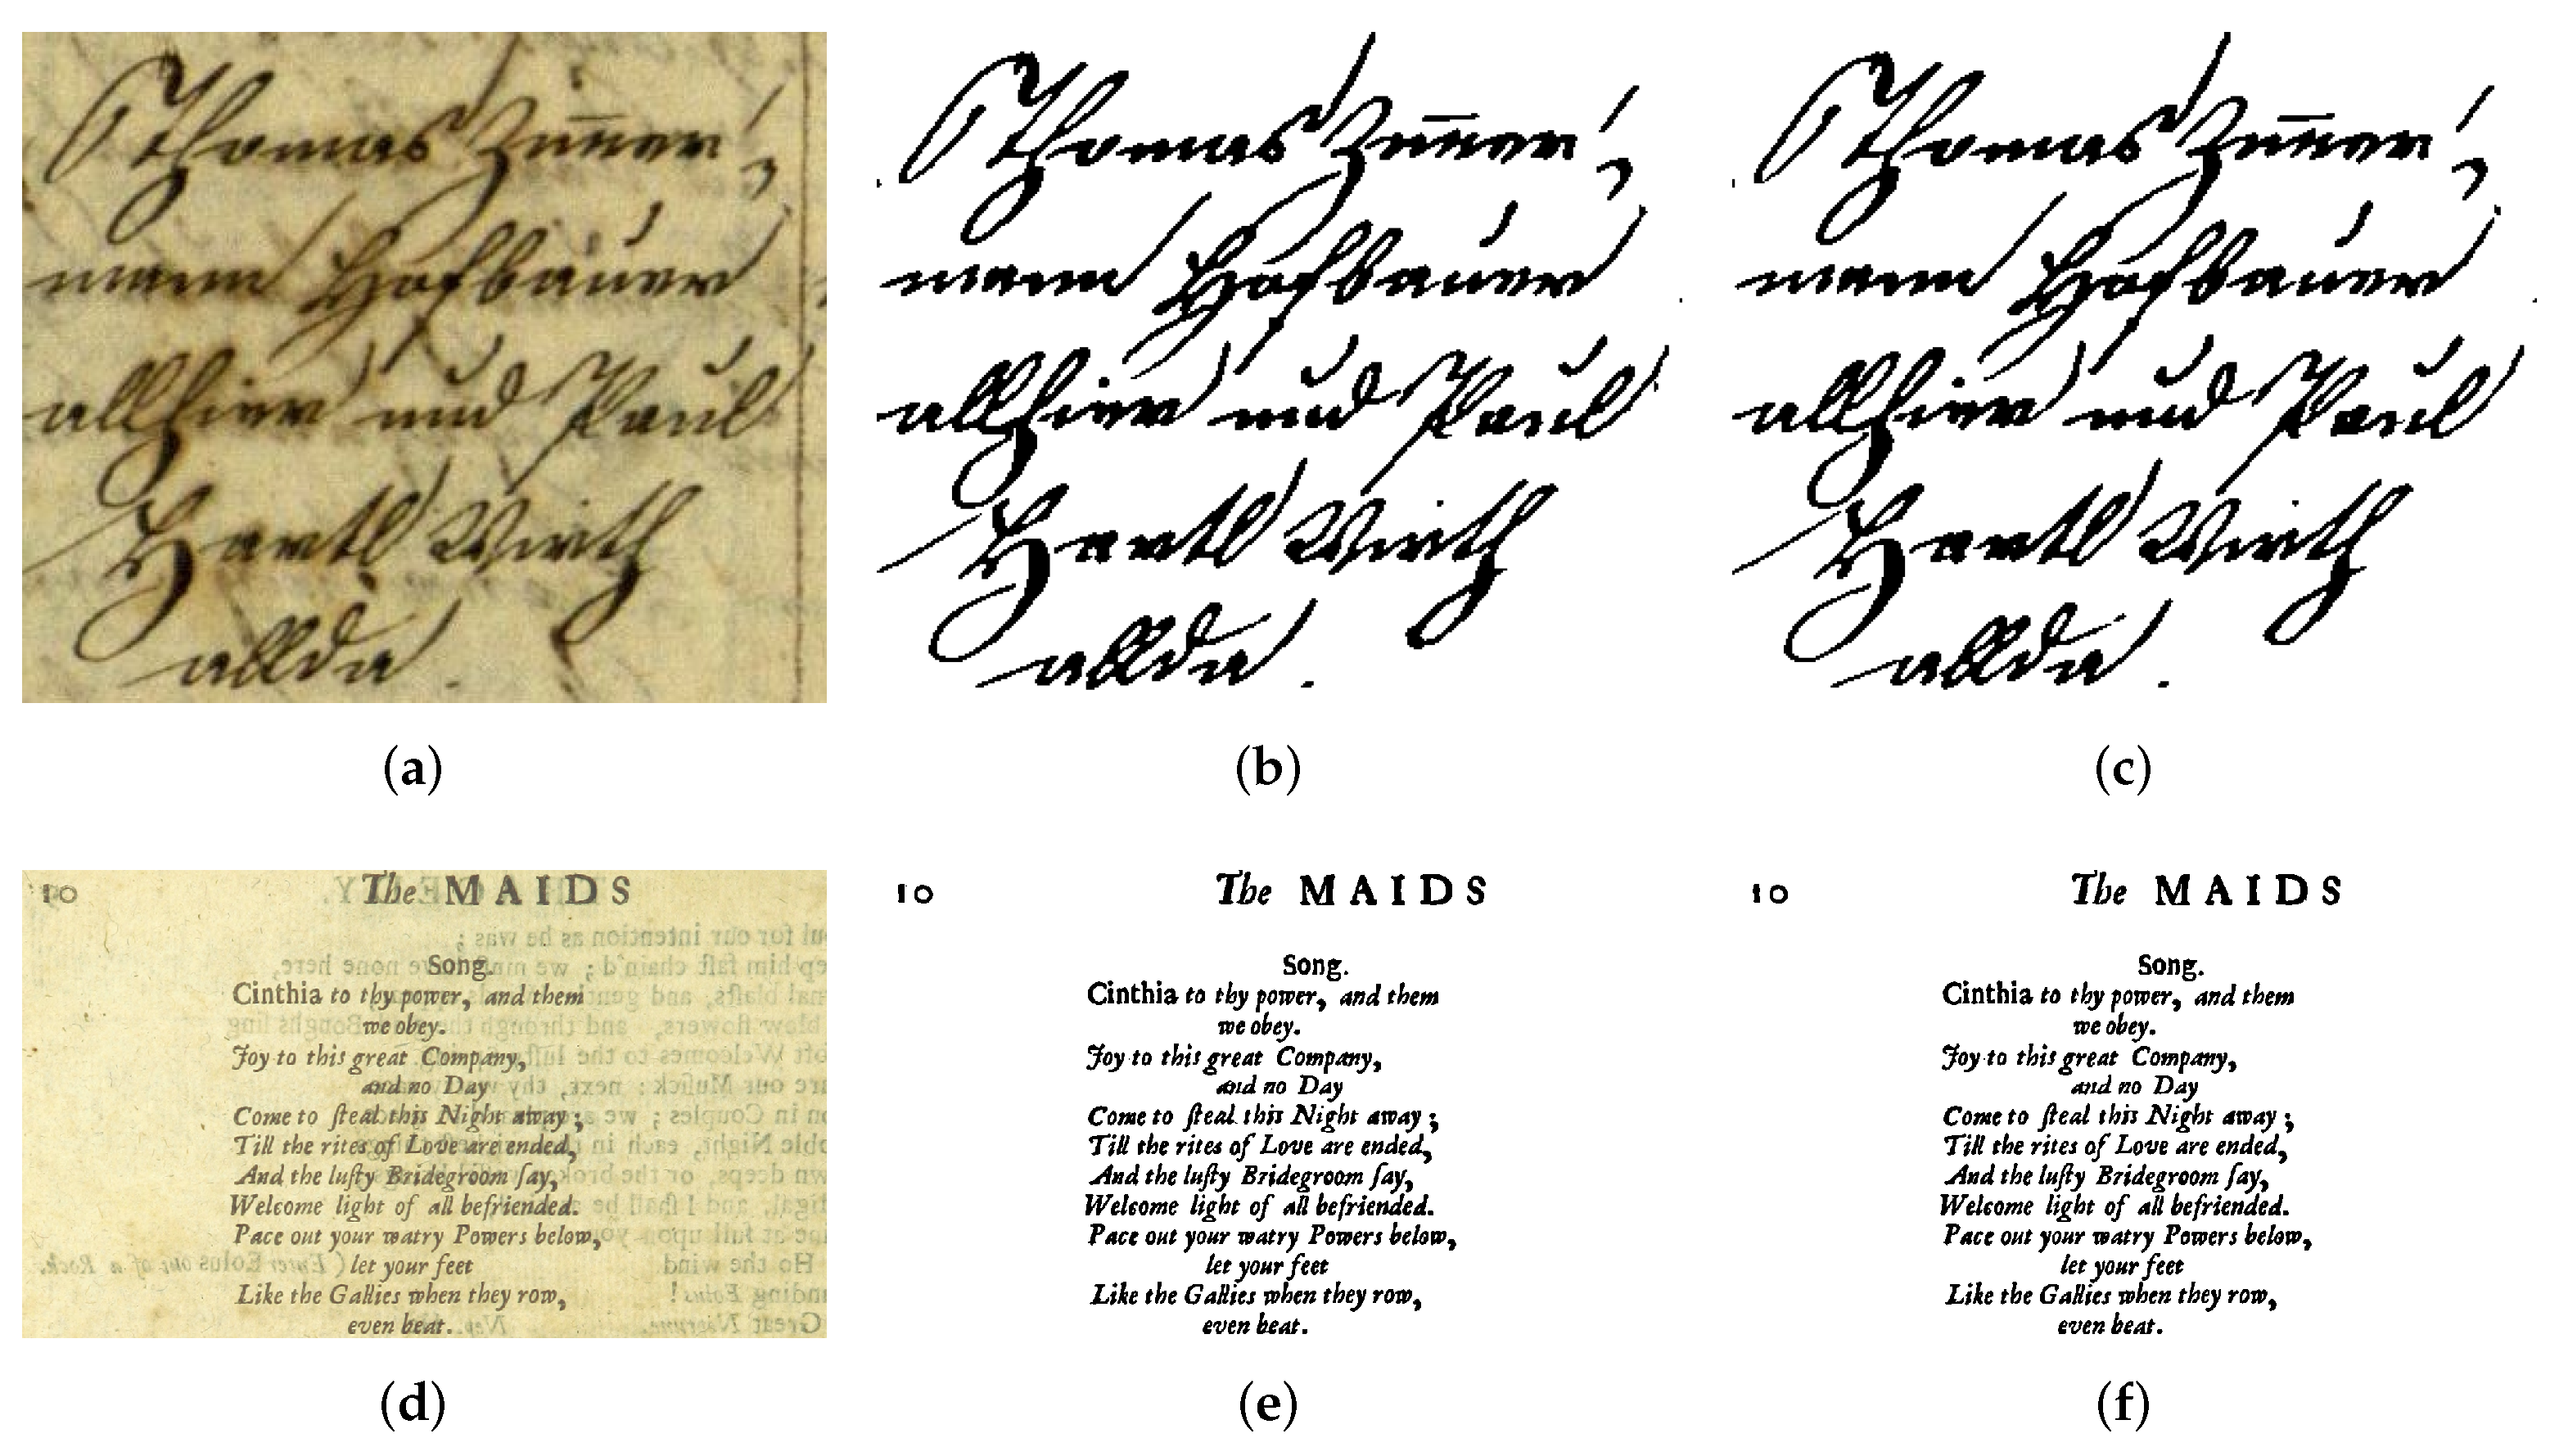 Thomas Zim̅er
mann Hofbauer
allhier und Paul
Hartl Wirth
allda.
Thomas Zim̅er
mann Hofbauer
allhier und Paul
Hartl Wirth
allda.
Thomas Zim̅er
mann Hofbauer
allhier und Paul
Hartl Wirth
allda.
(a)
(b)
(c)
10
The MAIDS
Song.
Cinthia to thy power, and them
we obey.
Joy to this great Company,
and no Day
Come to ſteal this Night away;
Till the rites of Love are ended,
And the luſty Bridegroom ſay,
Welcome light of all befriended.
Pace out your watry Powers below,
let your feet
Like the Gallies when they row,
even beat.
10
The MAIDS
Song.
Cinthia to thy power, and them
we obey.
Joy to this great Company,
and no Day
Come to ſteal this Night away;
Till the rites of Love are ended,
And the luſty Bridegroom ſay,
Welcome light of all befriended.
Pace out your watry Powers below,
let your feet
Like the Gallies when they row,
even beat.
10
The MAIDS
Song.
Cinthia to thy power, and them
we obey.
Joy to this great Company,
and no Day
Come to ſteal this Night away;
Till the rites of Love are ended,
And the luſty Bridegroom ſay,
Welcome light of all befriended.
Pace out your watry Powers below,
let your feet
Like the Gallies when they row,
even beat.
(d)
(e)
(f)